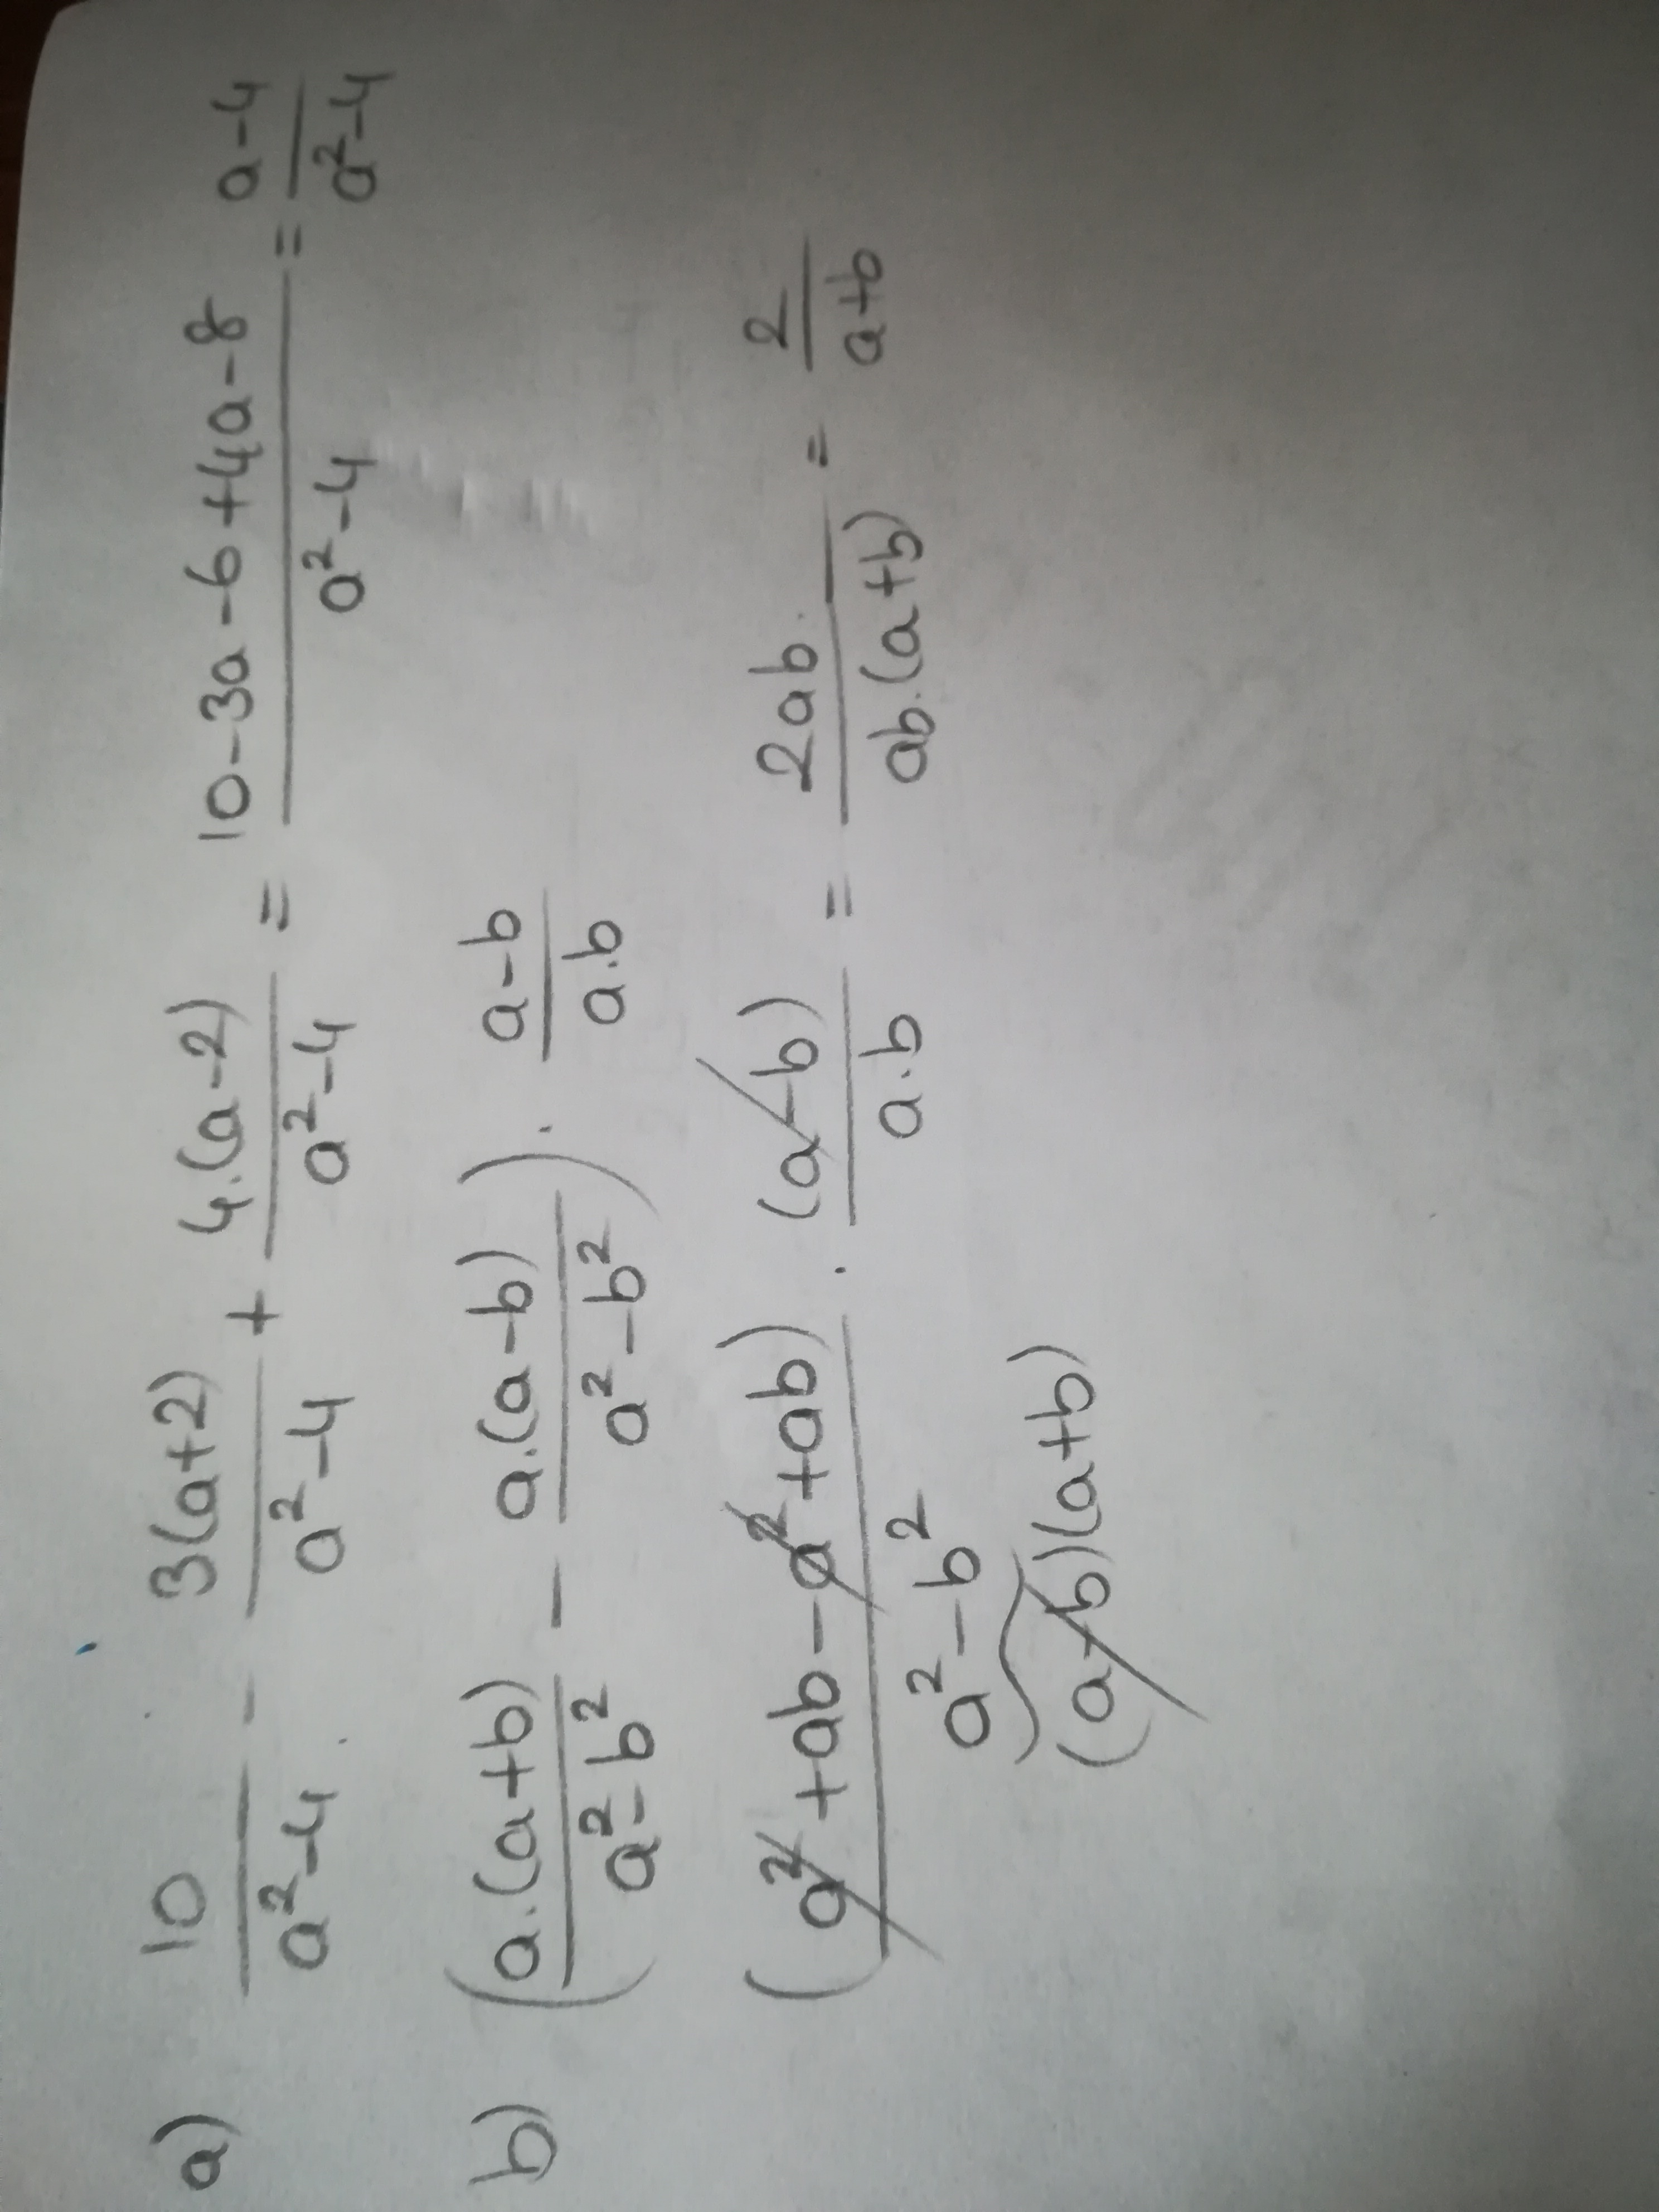 a) 10/(a²-4) - 3(a+2)/(a²-4) + 4.(a-2)/(a²-4) = (10-3a-6+4a-8)/(a²-4) = (a-4)/(a²-4)
b) (a.(a+b)/(a²-b²) - a.(a-b)/(a²-b²)) . (a-b)/(a.b)
(a²+ab-a²+ab)/(a²-b²) . (a-b)/(a.b) = 2ab/(ab.(a+b)) = 2/(a+b)
(a-b)(a+b)